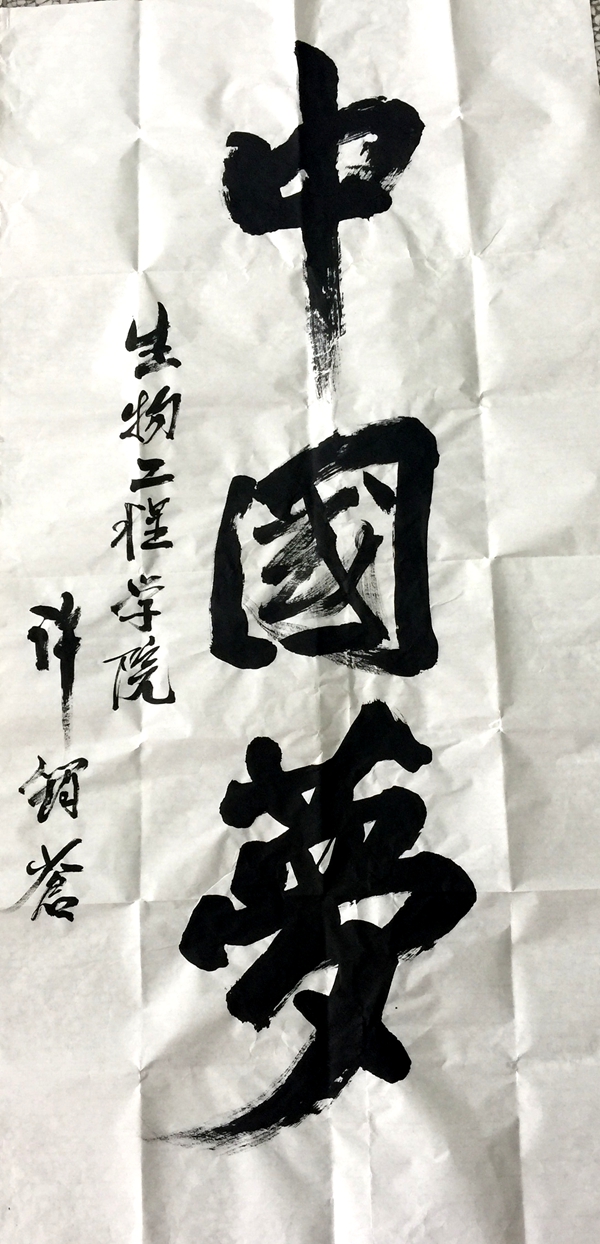 中國夢
生物工程学院
许